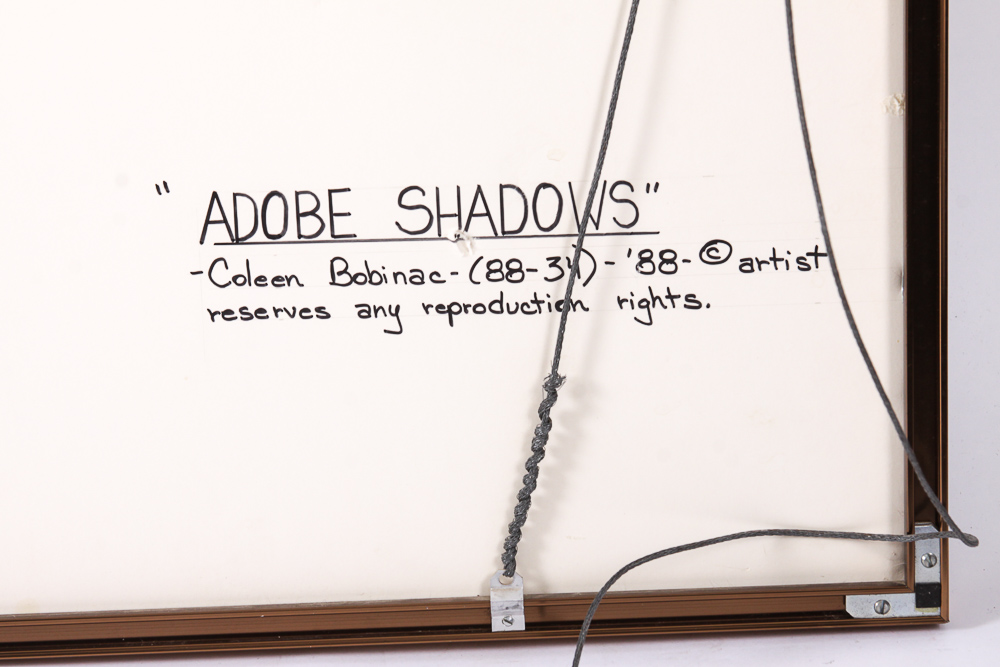 " ADOBE SHADOWS"
-Coleen Bobinac-(88-34)-'88-© artist
reserves any reproduction rights.